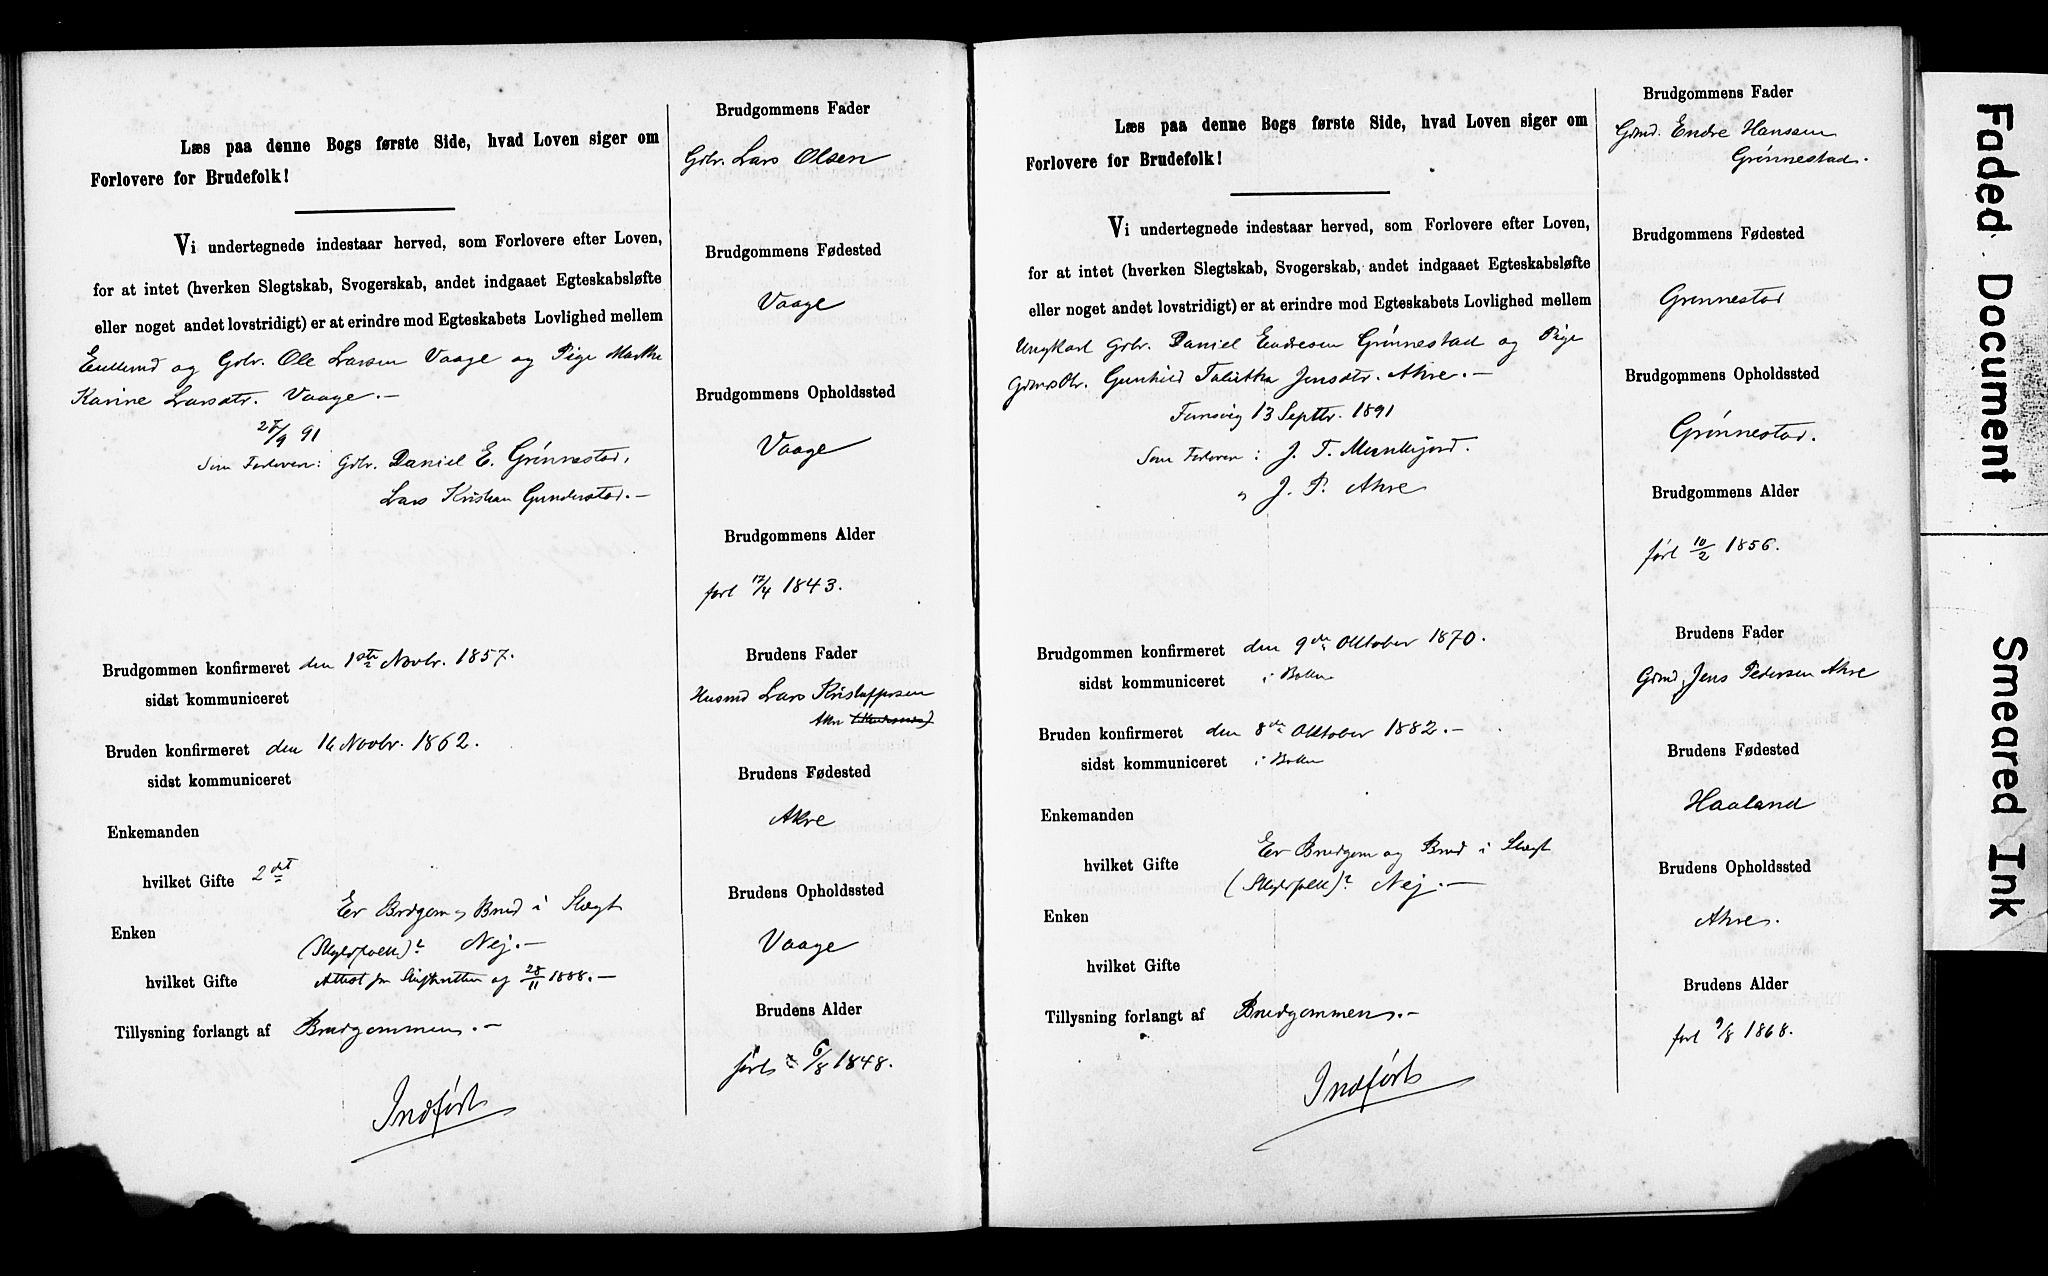 Læs paa denne Bogs første Side, hvad Loven siger om
Forlovere for Brudefolk!
Vi undertegnede indestaar herved, som Forlovere efter Loven,
for at intet (hverken Slegtskab, Svogerskab, andet indgaaet Egteskabsløfte
eller noget andet lovstridigt) er at erindre mod Egteskabets Lovlighed mellem
og Gbr. Ole Larsen Vaage og Pige Marthe
Karine Larsdtr. Vaage.-
/9 91
Som Forlovere: Gbr. Daniel E. Grønnestad,
Lars Kristian Gunderstad.-
Brudgommen konfirmeret den 1ste Novbr. 1857.
sidst kommuniceret
Bruden konfirmeret den 16 Novbr. 1862.
sidst kommuniceret
Enkemanden
hvilket Gifte 2det
Er Brdgom og Brud i Slægt
Enken
(Skyldfolk)? Nej.-
hvilket Gifte Attest fra Skifteretten af 28/11 1888.-
Tillysning forlangt af Brudgommen.-
Indført
Brudgommens Fader
Gbr. Lars Olsen
Brudgommens Fødested
Vaage
Brudgommens Opholdssted
Vaage
Brudgommens Alder
født 17/4 1843.
Brudens Fader
Husmd Lars Kristoffersen
Akre
Brudens Fødested
Akre
Brudens Opholdssted
Vaage
Brudens Alder
født 6/8 1848.
Læs paa denne Bogs første Side, hvad Loven siger om
Forlovere for Brudefolk!
Vi undertegnede indestaar herved, som Forlovere efter Loven,
for at intet (hverken Slegtskab, Svogerskab, andet indgaaet Egteskabsløfte
eller noget andet lovstridigt) er at erindre mod Egteskabets Lovlighed mellem
Ungkarl Gbr. Daniel Endresen Grønnestad og Pige
Gunhild Talitha Jensdtr. Akre.-
13 Septbr. 1891
Som Forlovere: J. T. Munkejord.
" J. P. Akre
Brudgommen konfirmeret den 9de Oktober 1870.
sidst kommuniceret i Bokn
Bruden konfirmeret den 8de Oktober 1882.-
sidst kommuniceret i Bokn
Enkemanden
Er Brudgom og Brud i Slægt
hvilket Gifte (Skyldfolk)? Nej.-
Enken
hvilket Gifte
Tillysning forlangt af Brudgommen.-
Indført
Brudgommens Fader
Gdmd. Endre Hansen
Grønnestad.
Brudgommens Fødested
Grønnestad
Brudgommens Opholdssted
Grønnestad.
Brudgommens Alder
født 10/2 1856.
Brudens Fader
Gdmd. Jens Pedersen Akre
Brudens Fødested
Haaland
Brudens Opholdssted
Akre.
Brudens Alder
født 9/8 1868.
Faded Document
Smeared Ink